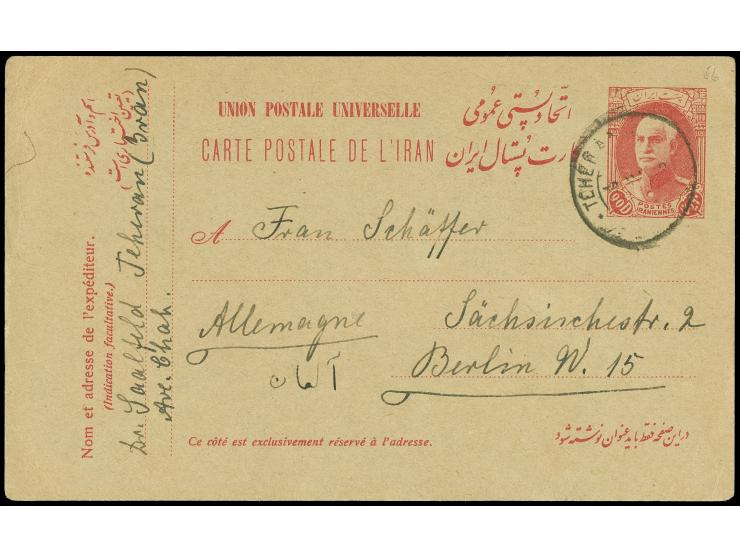 86
UNION POSTALE UNIVERSELLE
اتحاد پستی عمومی
CARTE POSTALE DE L'IRAN
کارت پستال ایران
پست ایران
POSTES
IRANIENNES
TEHERAN
A Frau Schäffer
Allemagne
Sächsischestr. 2
آلمان
Berlin W. 15
Ce côté est exclusivement réservé à l'adresse.
در این صفحه فقط باید عنوان نوشته شود
اسم و آدرس فرستنده
Nom et adresse de l'expéditeur.
(Indication facultative.)
Dr. Saalfeld Teheran (Iran)
Ave. Chah.